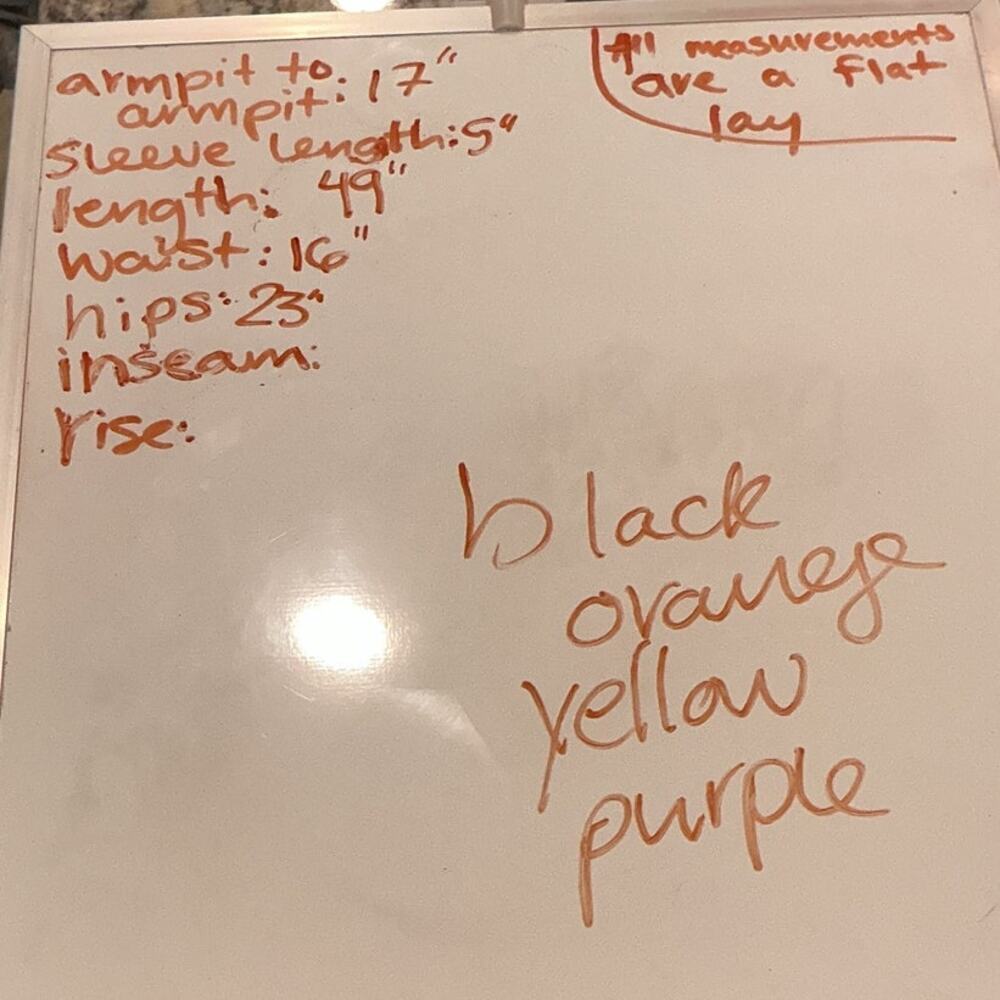 armpit to
armpit: 17"
sleeve length: 5"
length: 49"
waist: 16"
hips: 23"
inseam:
rise:
All measurements
are a flat
lay
black
orange
yellow
purple